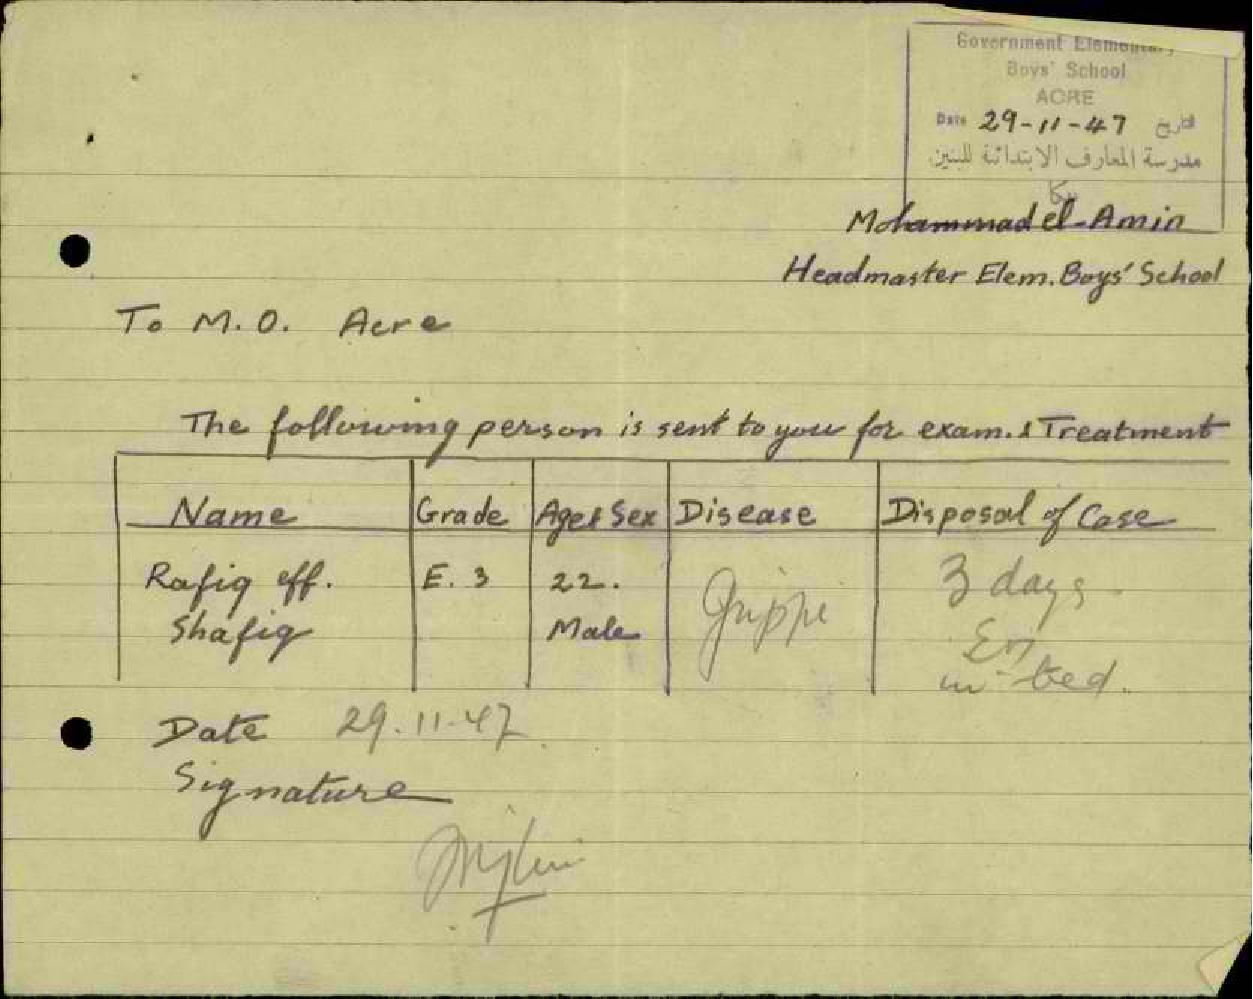 Government Elementary
Boys' School
ACRE
Date 29-11-47 التاريخ
مدرسة المعارف الابتدائية للبنين
عكا
Mohammad el-Amin
Headmaster Elem. Boys' School
To M.O. Acre
The following person is sent to you for exam. & Treatment
Name Grade Age & Sex Disease Disposal of Case
Rafiq eff. E. 3 22. Grippe 3 days
Shafiq Male
in bed.
Date 29.11.47
Signature